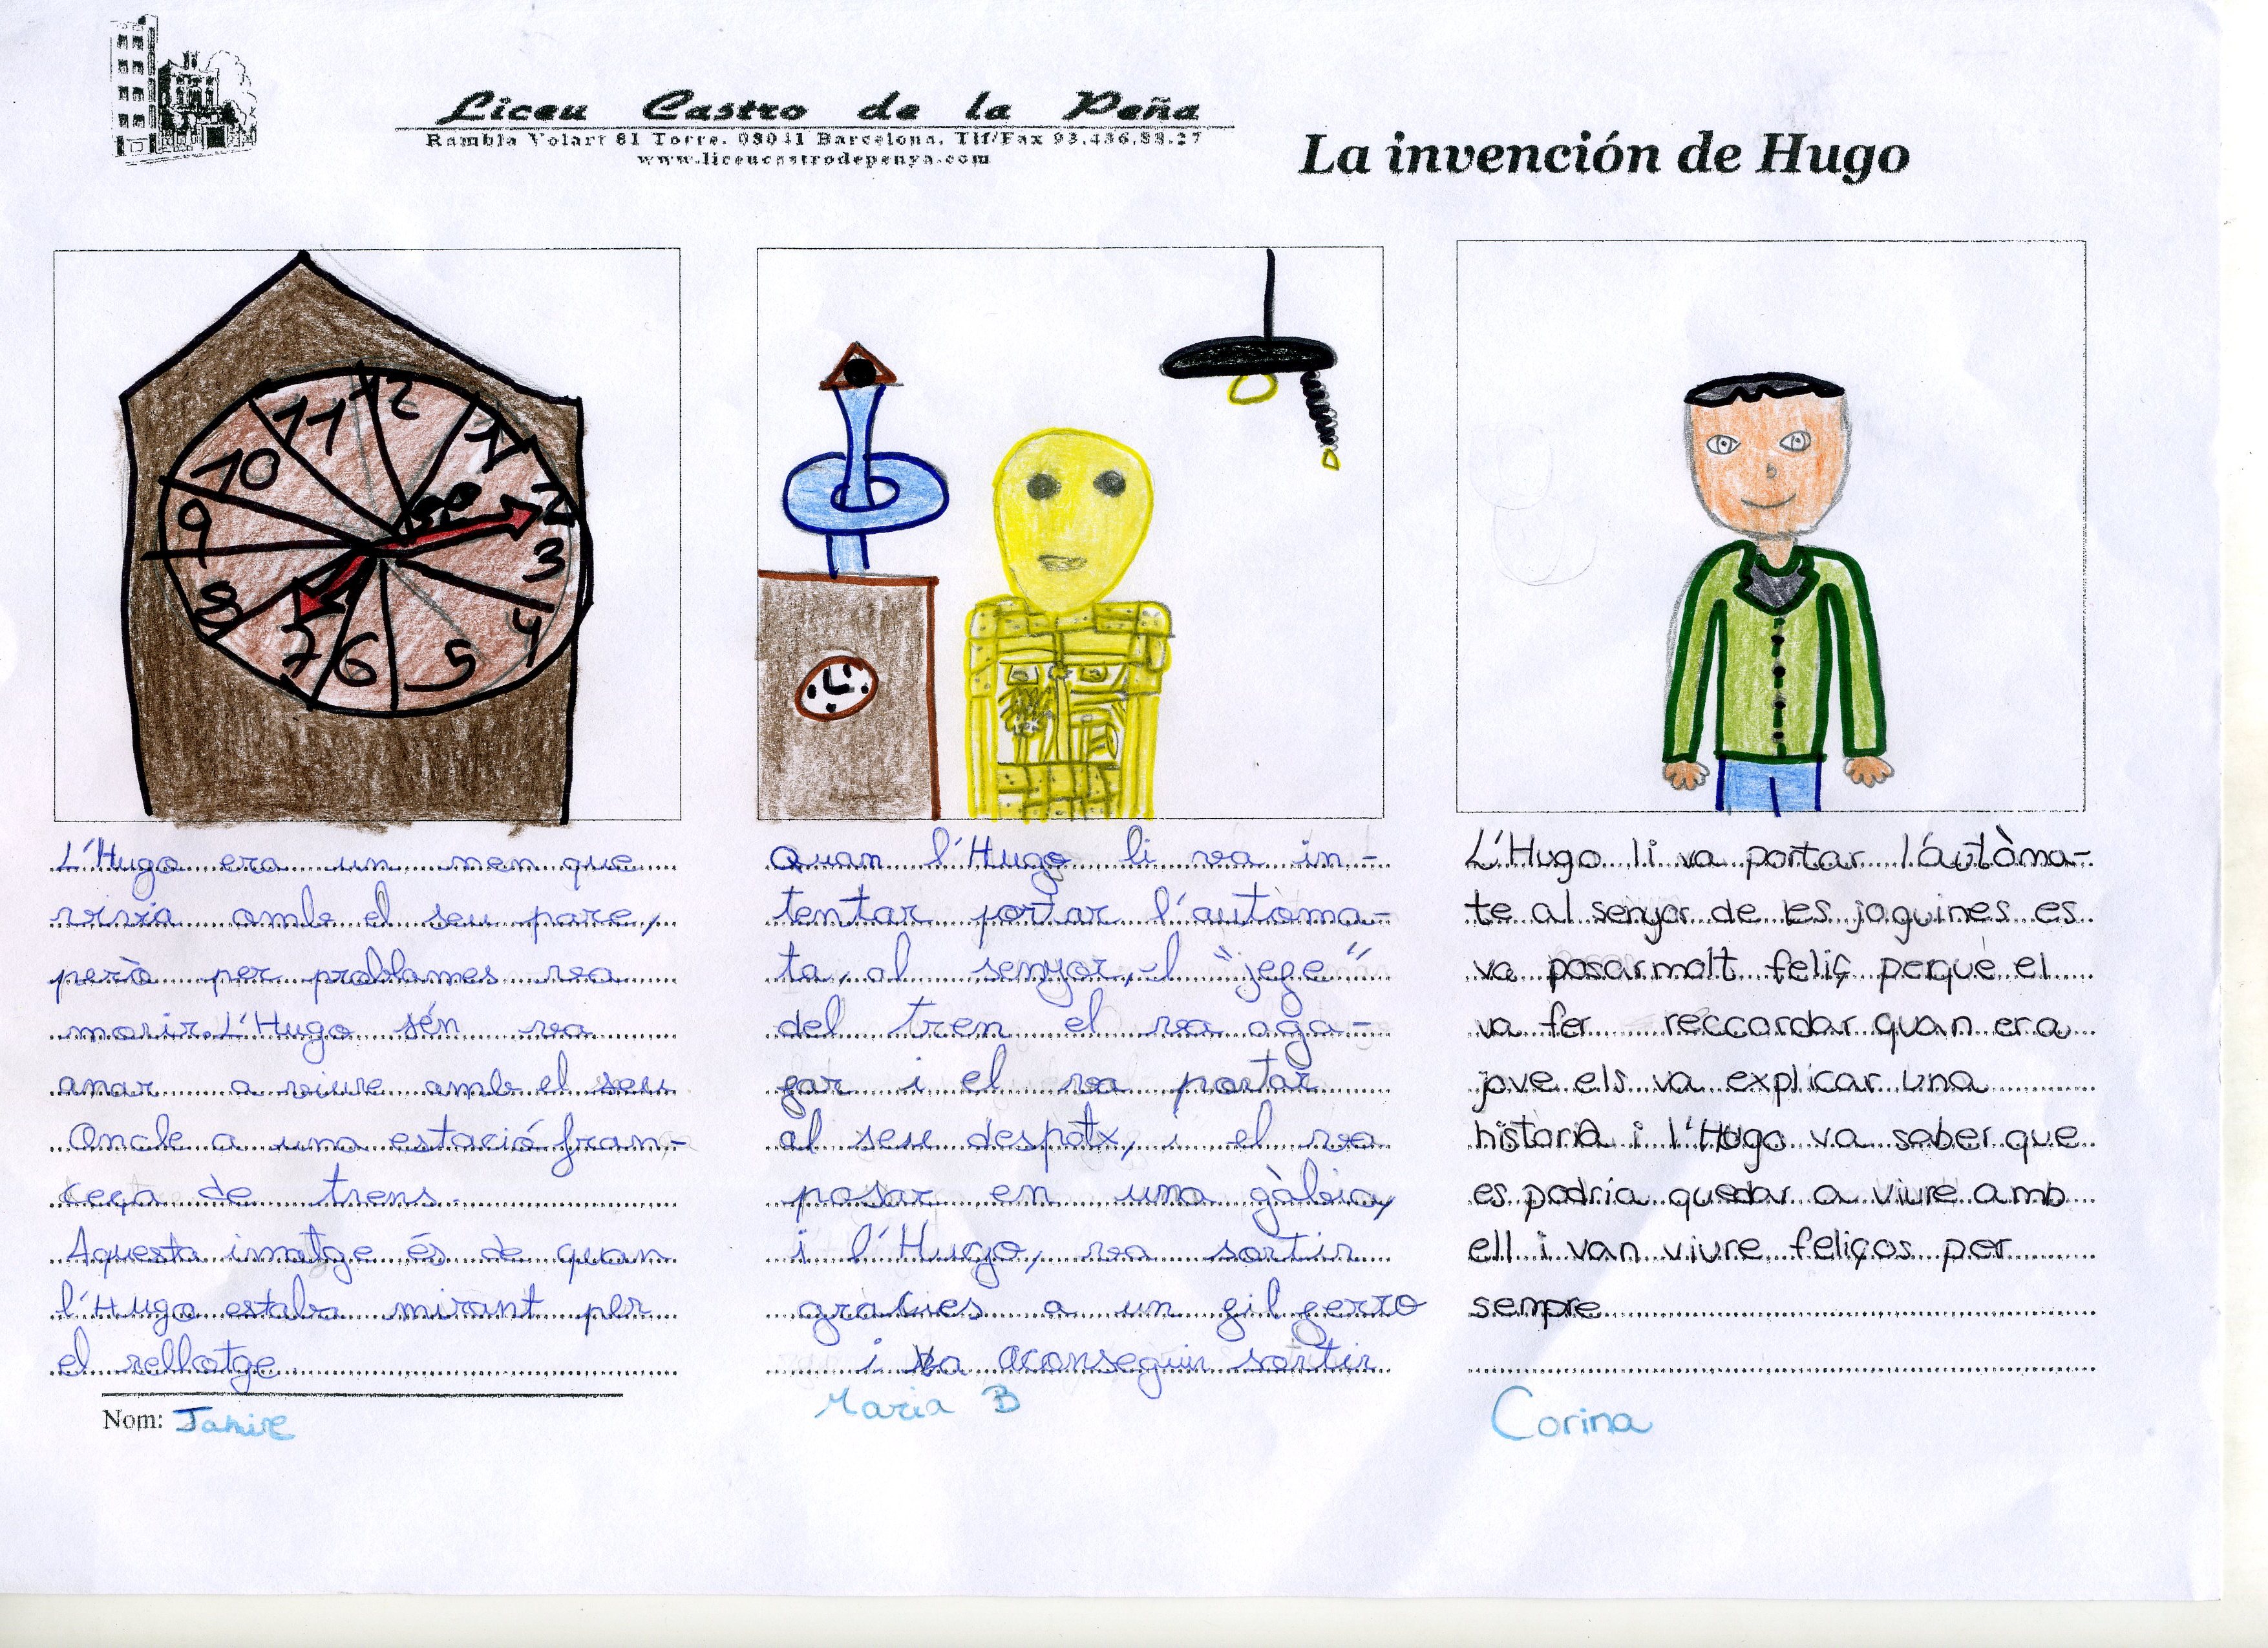 Liceu Castro de la Peña
Rambla Volart 81 Torre. 08041 Barcelona. Tlf/Fax 93.436.88.27
www.liceucastrodepenya.com
La invención de Hugo
11 12 1
10 2
9 3
8 4
7 6 5
L'Hugo era un nen que
vivia amb el seu pare,
però per problames va
morir. L'Hugo sén va
anar a viure amb el seu
Oncle a una estació fran-
ceça de trens.
Aquesta imatge és de quan
l'Hugo estaba mirant per
el rellotge
Nom:
Quan l'Hugo li va in-
tentar portar l'autòma-
ta, al senyor, el "jefe"
del tren el va aga-
far i el va portar
al seu despatx, i el va
posar en una gàbia,
i l'Hugo, va sortir
gràcies a un fil ferro
i va aconseguir sortir
Maria B
L'Hugo li va portar l'autòma-
te al senyor de les joguines es
va posar molt feliç perquè el
va fer reccordar quan era
jove els va explicar una
historia i l'Hugo va saber que
es podria quedar a viure amb
ell i van viure feliços per
sempre
Corina